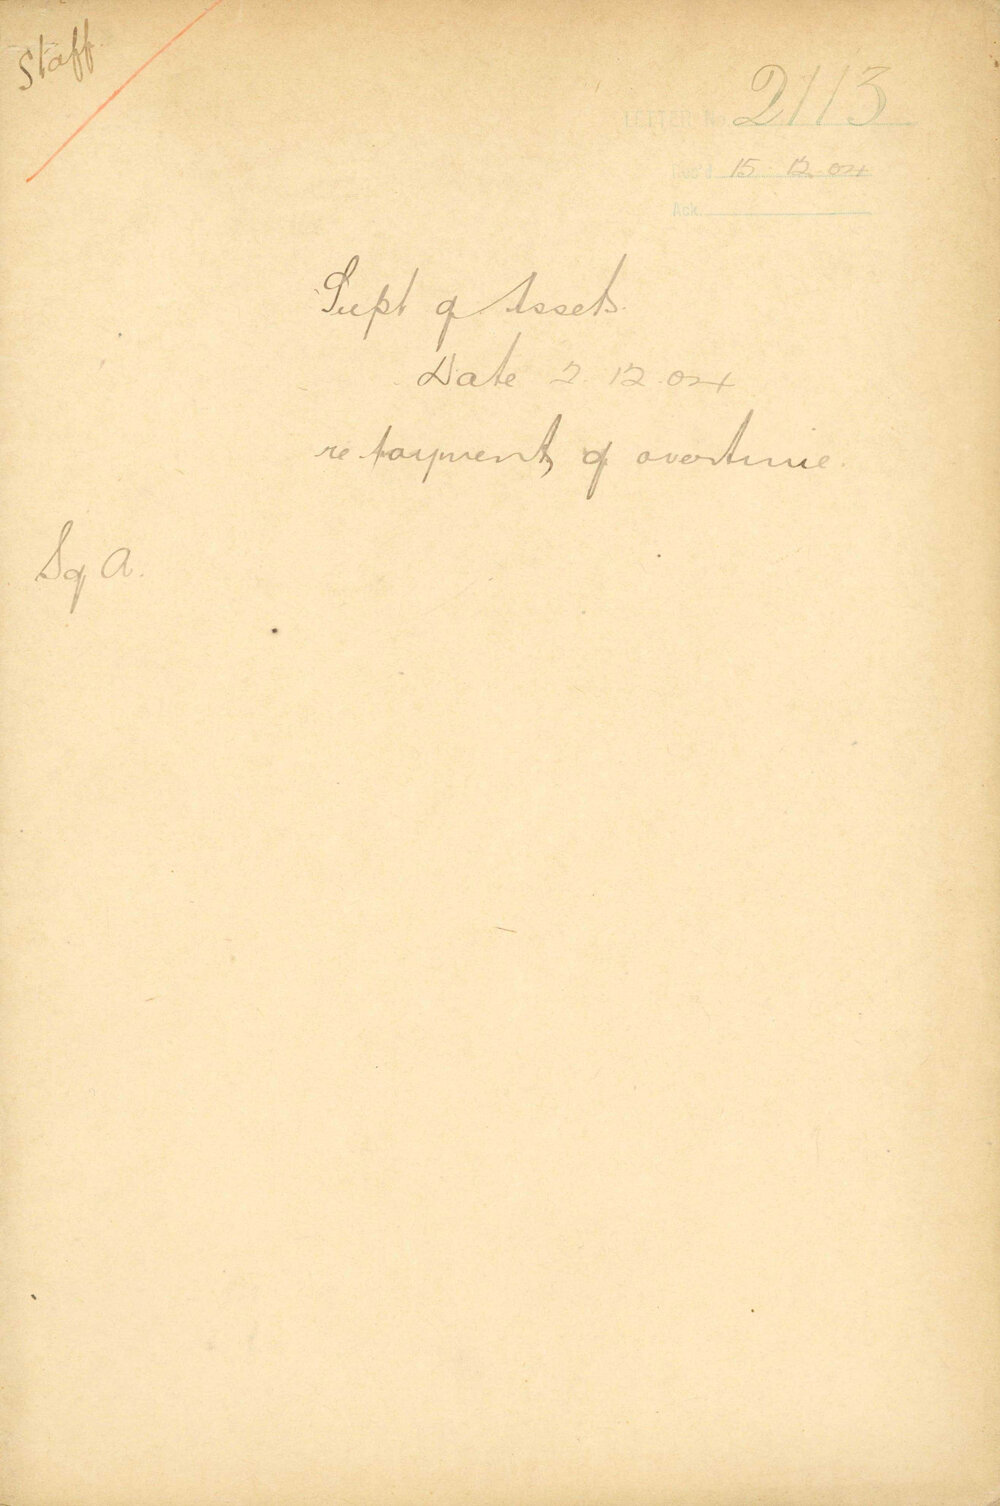 Staff
LETTER No. 2113
Rec'd 15.12.04
Ack
Supt of Assets
Date 2.12.04
re payment of overtime.
S of A.